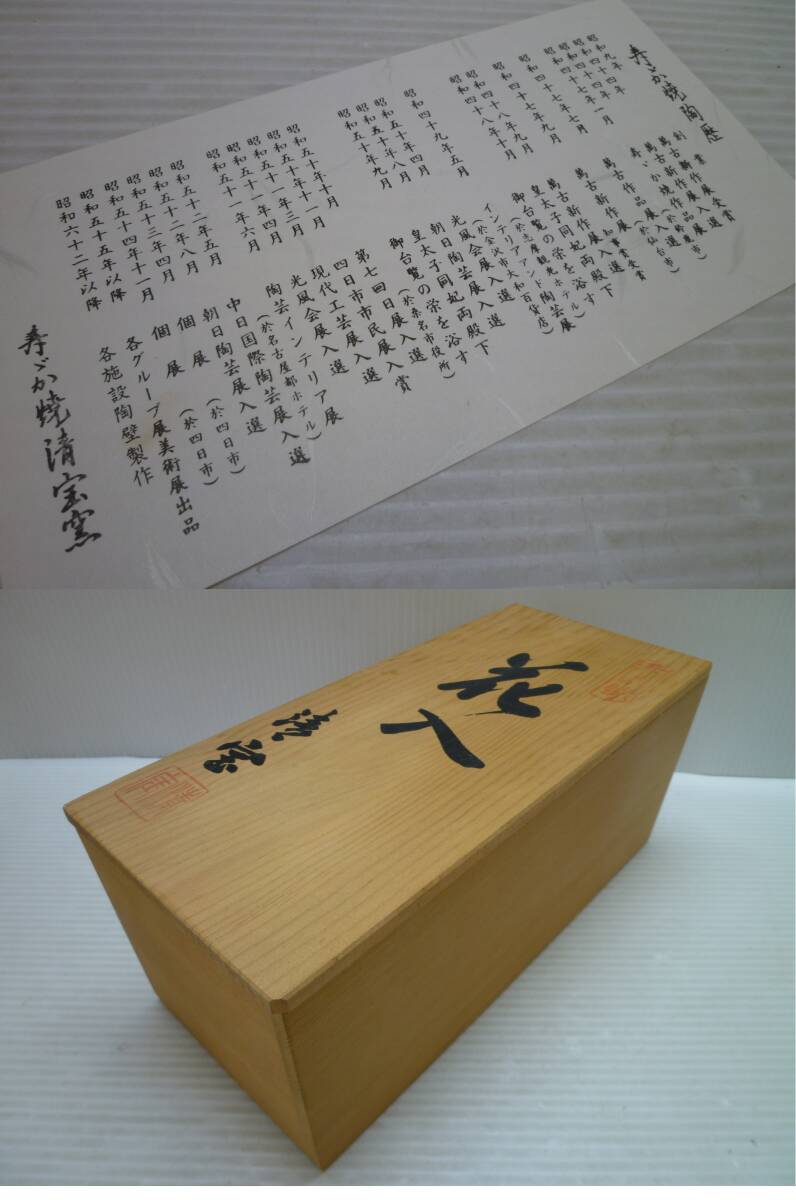 寿ゞか焼陶歴
昭和四十七年七月
昭和四十七年九月
昭和四十八年九月
昭和四十八年十月
昭和四十九年五月
昭和五十年四月
昭和五十年八月
昭和五十年九月
昭和五十年十月
昭和五十年十一月
昭和五十一年三月
昭和五十一年四月
昭和五十一年六月
昭和五十二年五月
昭和五十二年八月
昭和五十三年四月
昭和五十四年十一月
昭和五十五年以降
昭和六十二年以降
萬古新作展入選
皇太子同妃両殿下
御台覧の栄を浴す
(於志摩観光ホテル)
インテリアアンド陶芸展
(於金沢市大和百貨店)
光風会展入選
朝日陶芸展入選
皇太子同妃両殿下
御台覧の栄を浴す
(於桑名市役所)
第七回日展入選
四日市市民展入賞
現代工芸展入選
光風会展入選
陶芸インテリア展
(於名古屋都ホテル)
中日国際陶芸展入選
朝日陶芸展入選
個展 (於四日市)
個展 (於四日市)
各グループ展美術展出品
各施設陶壁製作
寿ゞか焼清宝窯
花入
清宝